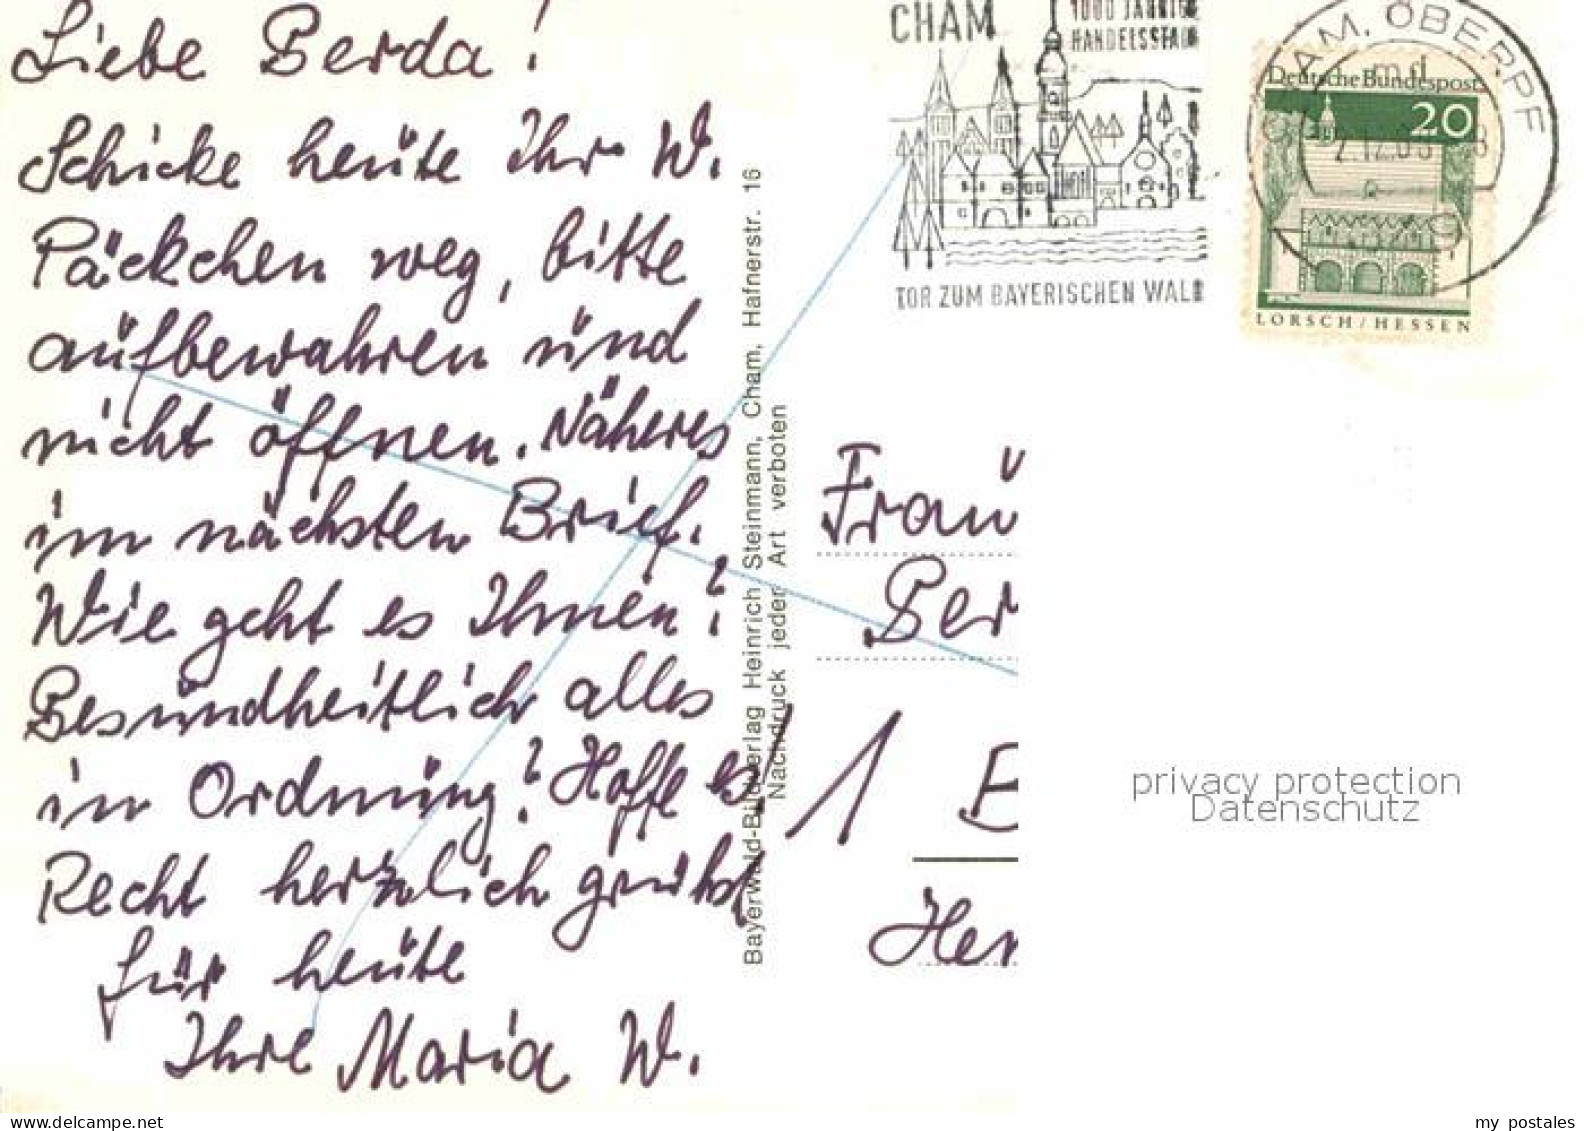 Liebe Berda!
Schicke heute Ihr W.
Päckchen weg, bitte
aufbewahren und
nicht öffnen. Näheres
im nächsten Brief.
Wie geht es Ihnen?
Gesundheitlich alles
in Ordnung? Hoffe es!
Recht herzlich grüßt
für heute
Ihre Maria W.
Bayerwald-Bildverlag Heinrich Steinmann, Cham, Hafnerstr. 16
Nachdruck jeder Art verboten
CHAM
1000 JÄHRIGE
HANDELSSTADT
TOR ZUM BAYERISCHEN WALD
AM, OBERPF
Deutsche Bundespost
20
LORSCH/HESSEN
Frau
Ber
1
Her
privacy protection
Datenschutz
my postales